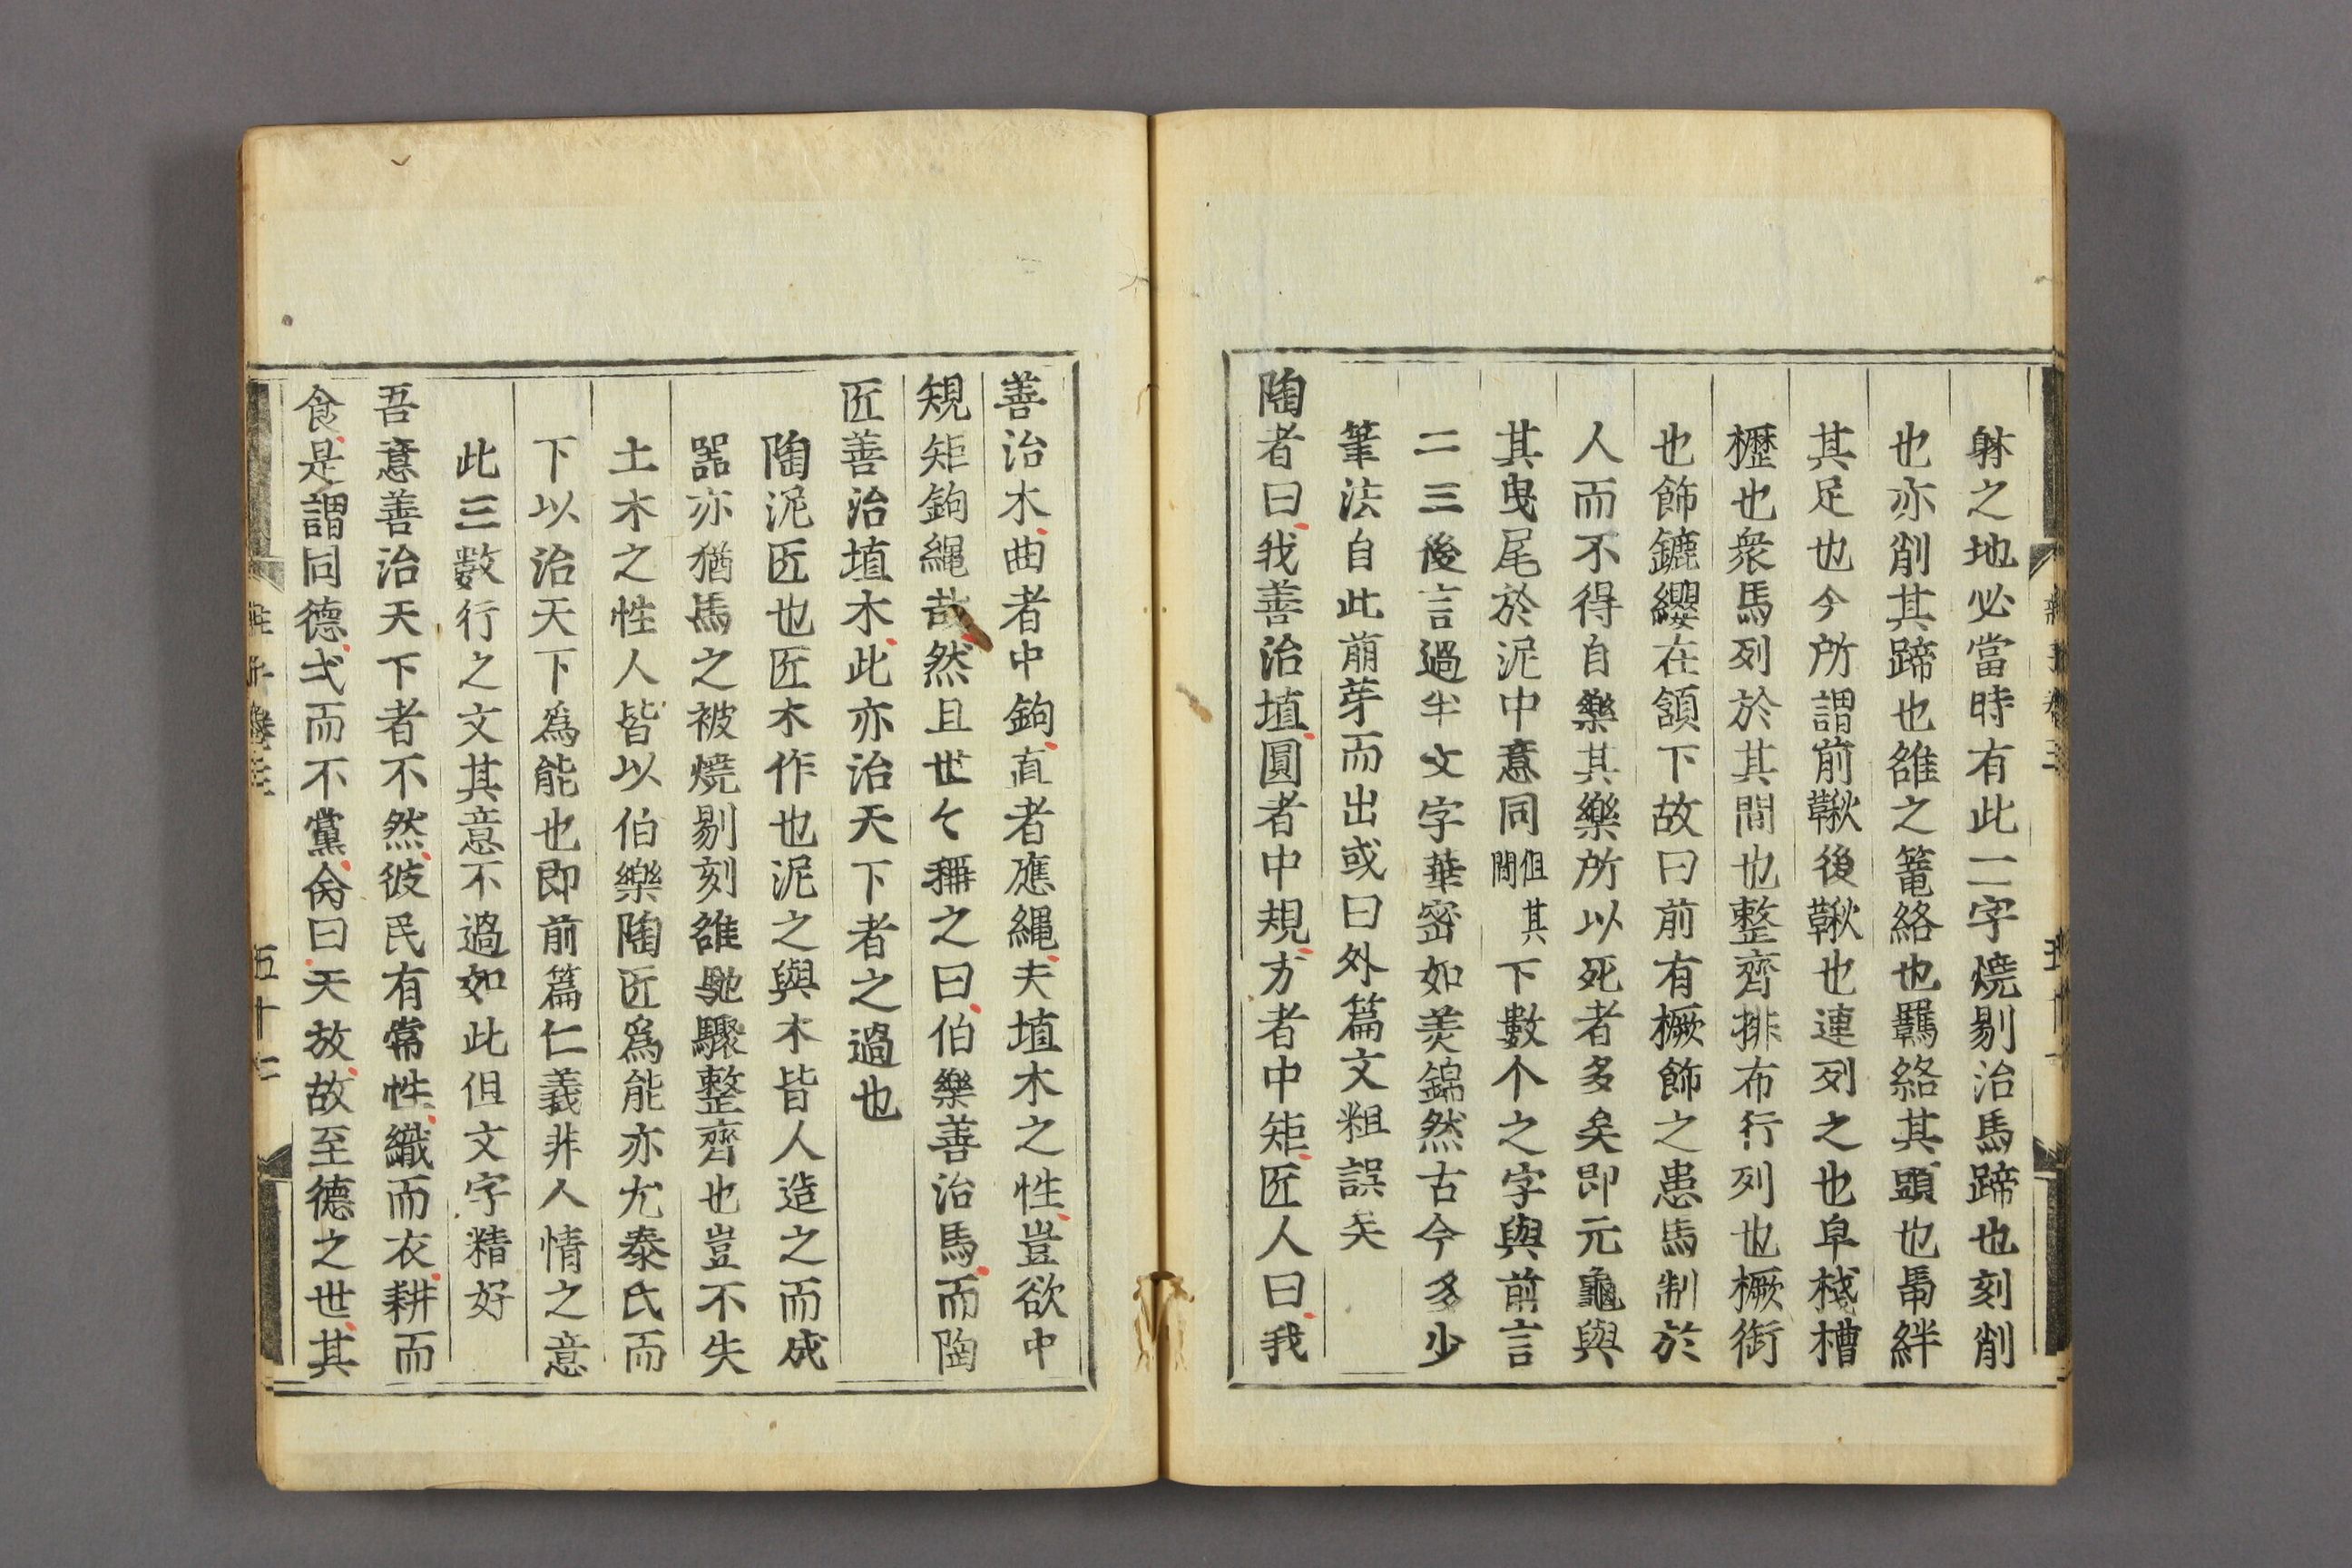 躰之地必當時有此二字燒剔治馬蹄也刻削
也亦削其蹄也雒之篭絡也羈絡其頭也馽絆
其足也今所謂前鞦後鞦也連列之也皁棧槽
櫪也衆馬列於其間也整齊排布行列也橛銜
也飾鑣纓在頷下故曰前有橛飾之患馬制於
人而不得自樂其樂所以死者多矣即元龜與
其曳尾於泥中意同但其間下數个之字與前言
二三後言過半文字華密如美錦然古今多少
筆法自此萠芽而出或曰外篇文粗誤矣
陶者曰我善治埴圓者中規方者中矩匠人曰我
善治木曲者中鉤直者應繩夫埴木之性豈欲中
規矩鉤繩哉然且世々稱之曰伯樂善治馬而陶
匠善治埴木此亦治天下者之過也
陶泥匠也匠木作也泥之與木皆人造之而成
器亦猶馬之被燒剔刻雒馳驟整齊也豈不失
土木之性人皆以伯樂陶匠爲能亦尤泰氏而
下以治天下爲能也即前篇仁義非人情之意
此三數行之文其意不過如此但文字精好
吾意善治天下者不然彼民有常性織而衣耕而
食是謂同德弌而不黨命曰天放故至德之世其
五十二